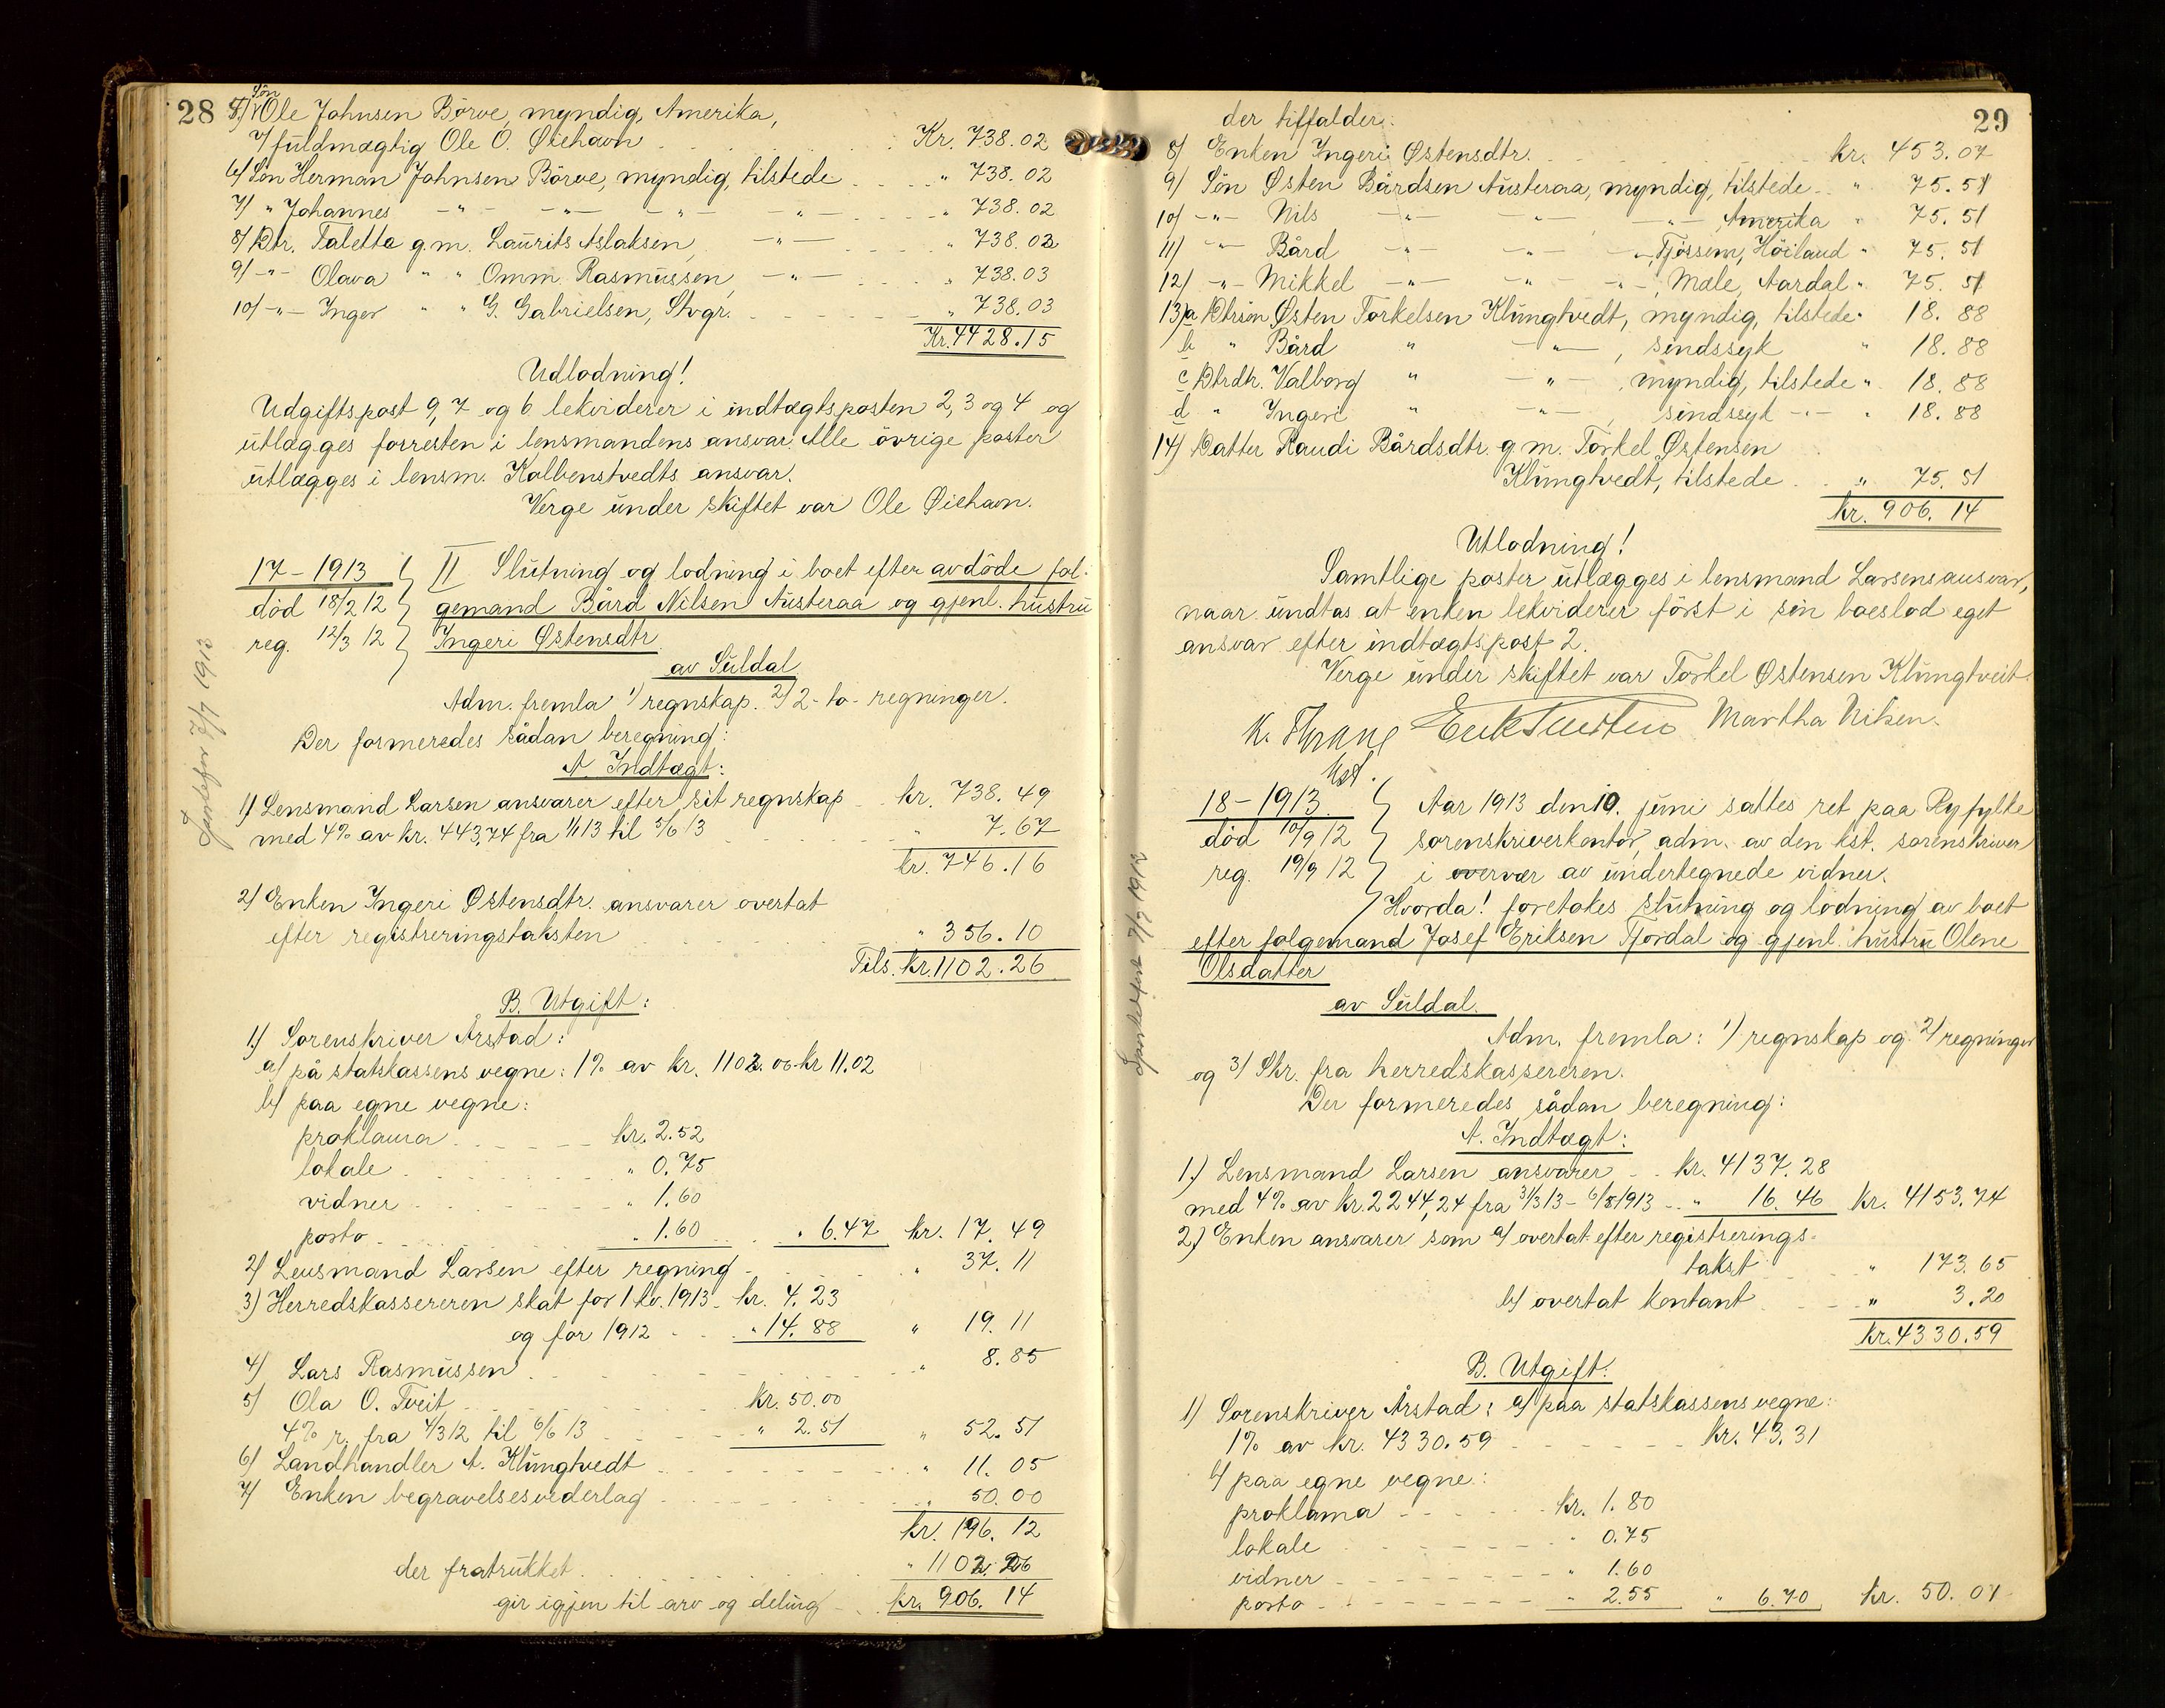 28
5) Søn Ole Johnsen Börve, myndig, Amerika,
v/ fuldmægtig Ole O. Øiehavn . . . . Kr. 738.02
6) Søn Herman Johnsen Börve, myndig, tilstede . . . . " 738.02
7) " Johannes -"- -"- -"- -"- . . . . " 738.02
8) Dtr. Taletta g.m. Laurits Aslaksen, -"- . . . . " 738.02
9) -"- Olava " " Omm. Rasmussen, -"- . . . . " 738.03
10) -"- Inger " " G. Gabrielsen, Stvgr. . . . . " 738.03
Kr. 4428.15
Udlodning!
Udgiftspost 9, 7 og 6 lekviderer i indtægtsposten 2, 3 og 4 og
utlægges forresten i lensmandens ansvar. Alle övrige poster
utlægges i lensm. Kolbenstvedts ansvar.
Verge under skiftet var Ole Øiehavn.
17-1913 II Slutning og lodning i boet efter avdöde fol-
död 18/2 12 gemand Bård Nilsen Austeraa og gjenl. hustru
reg. 12/3 12 Ingeri Østensdtr.
av Suldal
Adm. fremla 1) regnskap. 2) 2-to- regninger.
Der formeredes sådan beregning:
A. Indtægt:
1) Lensmand Larsen ansvarer efter sit regnskap . . kr. 738.49
med 4% av kr. 443,74 fra 1/1 13 til 5/6 13 . . . . " 7.67
kr. 746.16
2) Enken Ingeri Østensdtr. ansvarer overtat
efter registreringstaksten . . . . " 356.10
Tils. kr. 1102.26
B. Utgift:
1.) Sorenskriver Årstad:
a) på statskassens vegne: 1% av kr. 1102. kr 11.02
b) paa egne vegne:
proklama . . . . kr. 2.52
lokale . . . . " 0.75
vidner . . . . " 1.60
porto . . . . " 1.60 . . " 6.47 kr. 17.49
2) Lensmand Larsen efter regning . . . . " 37.11
3) Herredskassereren skat for 1 hv. 1913 - kr. 4.23
og for 1912 . . " 14.88 " 19.11
4) Lars Rasmussen . . . . " 8.85
5) Ola O. Tveit . . . . kr. 50.00
4% r. fra 4/3 12 til 6/6 13 . . . . " 2.51 " 52.51
6) Landhandler A. Klungtvedt . . . . " 11.05
7) Enken begravelsesvederlag . . . . " 50.00
kr. 196.12
der fratrukket . . . . " 1102.26
gir igjen til arv og deling . . kr. 906.14
29
der tilfalder:
8) Enken Ingeri Østensdtr. . . . . kr. 453.07
9) Sön Østen Bårdsen Austeraa, myndig, tilstede . . " 75.51
10) -"- Nils -"- -"- -"- Amerika " 75.51
11) -"- Bård -"- -"- -"-, Tjössem, Höiland " 75.51
12) -"- Mikkel -"- -"- -"-, Mæle, Aardal " 75.51
13) a Dtrsön Østen Torkelsen Klungtvedt, myndig, tilstede " 18.88
b " Bård " -"-, sindssyk " 18.88
c Dtrdtr. Valborg " -"-, myndig, tilstede " 18.88
d " Ingeri " -"-, sindssyk -"- " 18.88
14) Datter Raudi Bårdsdtr. g.m. Torkel Østensen
Klungtvedt, tilstede . . " 75.51
kr. 906.14
Utlodning!
Samtlige poster utlægges i lensmand Larsens ansvar,
naar undtas at enken lekviderer först i sin boeslod eget
ansvar efter indtægtspost 2.
Verge under skiftet var Torkel Østensen Klungtveit.
K. Thrane Martha Nilsen.
kst.
18-1913 Aar 1913 den 10. juni sattes ret paa Ryfylke
död 10/9 12 sorenskriverkontor, adm. av den kst. sorenskriver
reg. 19/9 12 i overvær av undertegnede vidner.
Hvorda! foretakes slutning og lodning av boet
efter folgemand Josef Eriksen Fjordal og gjenl. hustru Olene
Olsdatter
av Suldal.
Adm. fremla: 1) regnskap og 2) regninger
og 3) Skr. fra herredskassereren.
Der formeredes sådan beregning:
A. Indtægt:
1.) Lensmand Larsen ansvarer . . kr. 4137.28
med 4% av kr. 2244,24 fra 31/3 13 - 6/6 1913 . . " 16.46 kr. 4153.74
2.) Enken ansvarer som a) overtat efter registrerings-
takst . . " 173.65
b) overtat kontant . . " 3.20
kr. 4330.59
B. Utgift:
1) Sorenskriver Årstad: a) paa statskassens vegne:
1% av kr. 4330.59 . . . . kr. 43.31
b) paa egne vegne:
proklama . . . . kr. 1.80
lokale . . . . " 0.75
vidner . . . . " 1.60
porto . . . . " 2.55 " 6.70 kr. 50.01
7/7 1913
7/7 1913